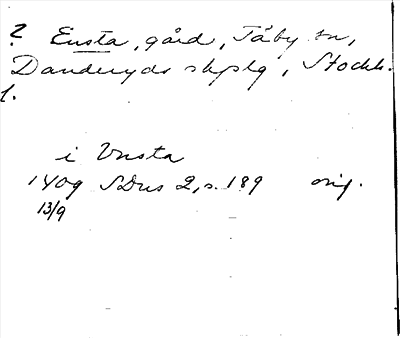 ? Ensta, gård, Täby sn,
Danderyds skplg, Stockh.
l.
i Vnsta
1409 SDns 2, s. 189 orig.
13/9